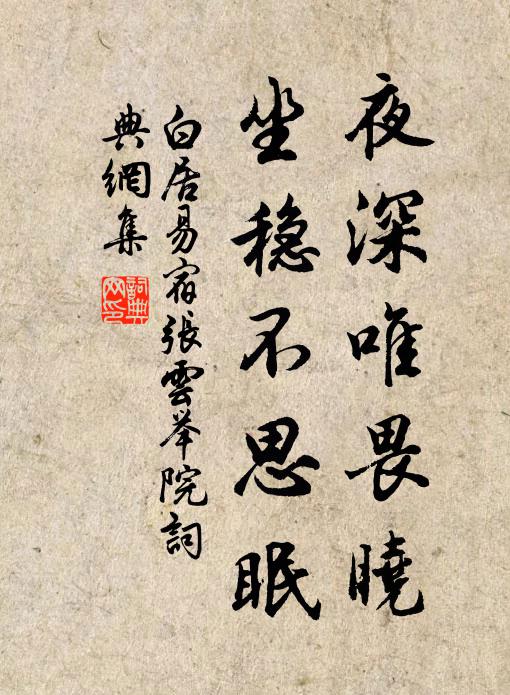 夜深唯畏曉
坐稳不思眠
白居易宿張雲举院詞
典網集
詞典
网印